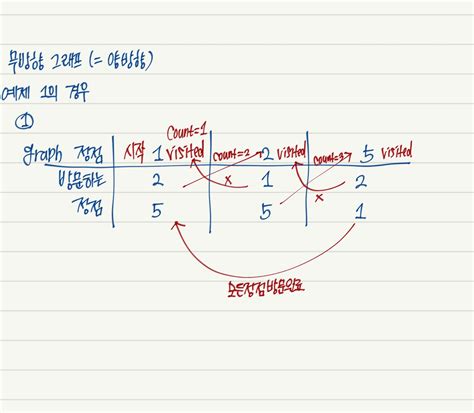 무방향 그래프 (= 양방향)
예제 1의 경우
①
count=1
graph 정점 시작 1 visited count=2 2 visited count=3 5 visited
방문하는 2 x 1 2
정점 5 5 x 1
모든정점방문완료